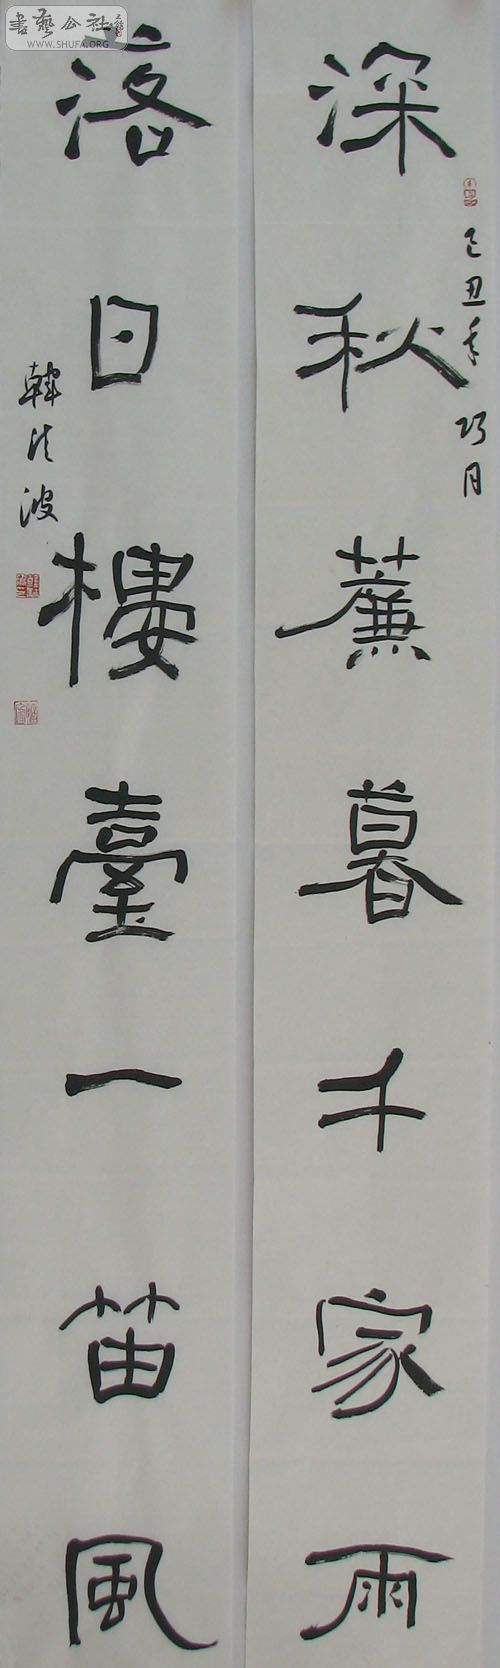 書藝公社
WWW.SHUFA.ORG
深秋薕暮千家雨
己丑年巧月
落日樓臺一笛風
韓波